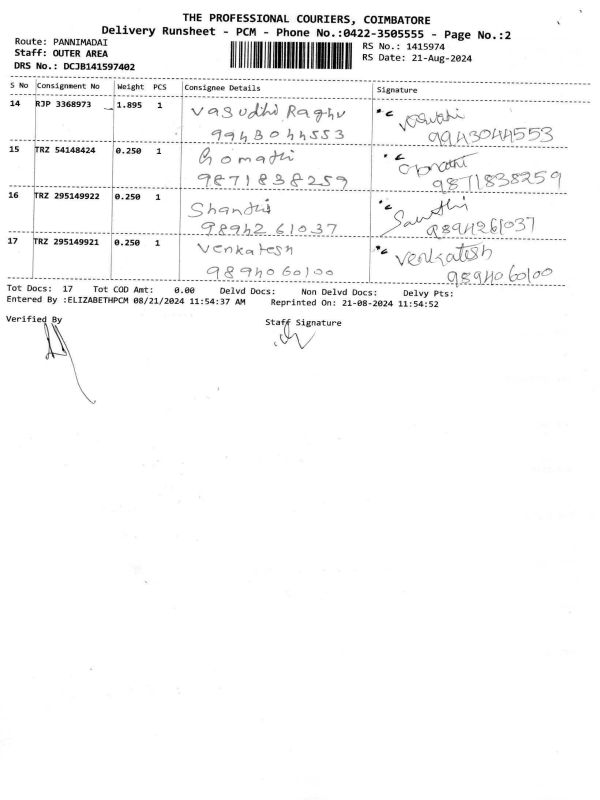 THE PROFESSIONAL COURIERS, COIMBATORE
Delivery Runsheet - PCM - Phone No.:0422-3505555 - Page No.:2
Route: PANNIMADAI
RS No.: 1415974
Staff: OUTER AREA
RS Date: 21-Aug-2024
DRS No.: DCJB141597402
S No Consignment No Weight PCS Consignee Details Signature
14 RJP 3368973 1.895 1 Vasudhi Raghu
9943044553 9943044553
15 TRZ 54148424 0.250 1 Gomathi
9871838259 9871838259
16 TRZ 295149922 0.250 1 Shanthi
98942 61037 9894261037
17 TRZ 295149921 0.250 1 Venkatesh Venkatesh
9894060100 9894060100
Tot Docs: 17 Tot COD Amt: 0.00 Delvd Docs: Non Delvd Docs: Delvy Pts:
Entered By :ELIZABETHPCM 08/21/2024 11:54:37 AM Reprinted On: 21-08-2024 11:54:52
Verified By Staff Signature